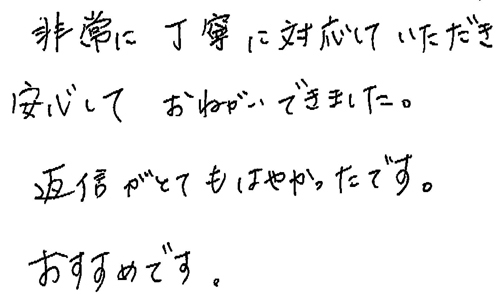 非常に丁寧に対応していただき
安心して おねがいできました。
返信がとてもはやかったです。
おすすめです。